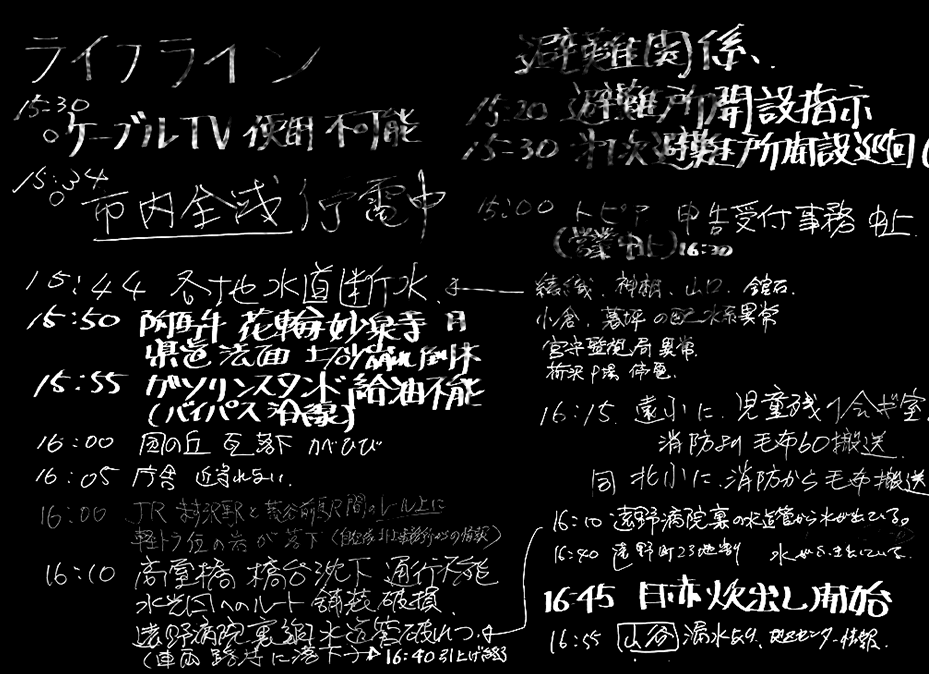 ライフライン
15:30
○ケーブルTV使用不可能
15:34
○市内全域停電中
15:44 各地水道断水
15:50 附馬牛 花輪 妙泉寺
県道法面 土砂崩れ倒木
15:55 ガソリンスタンド給油不能
(バイパス沿線)
16:00 岡の丘 瓦落下 かべひび
16:05 庁舎 近寄れない.
16:00 JR
軽トラ位の岩が落下
16:10 高室橋 橋台沈下 通行不能
水光園へのルート 舗装破損.
遠野病院裏側水道管破れつ
(車両 路持に落下 16:40引上げ
避難関係.
15:20 避難所開設指示
15:30 避難所開設巡回
15:00 トピア 申告受付事務中止.
(営業中止) 16:30
綾織. 神根. 山口. 舘石.
小倉. 暮坪の配水系異常
宮守監視局異常.
停電.
16:15. 遠小に.児童残
消防より毛布60搬送
同 北小に.消防から毛布搬送
16:10 遠野病院裏の水道管から水が出ている。
16:40 遠野町23地割 水がふき出している.
16:45 日赤炊出し開始
16:55 山谷 漏水あり. センター情報.